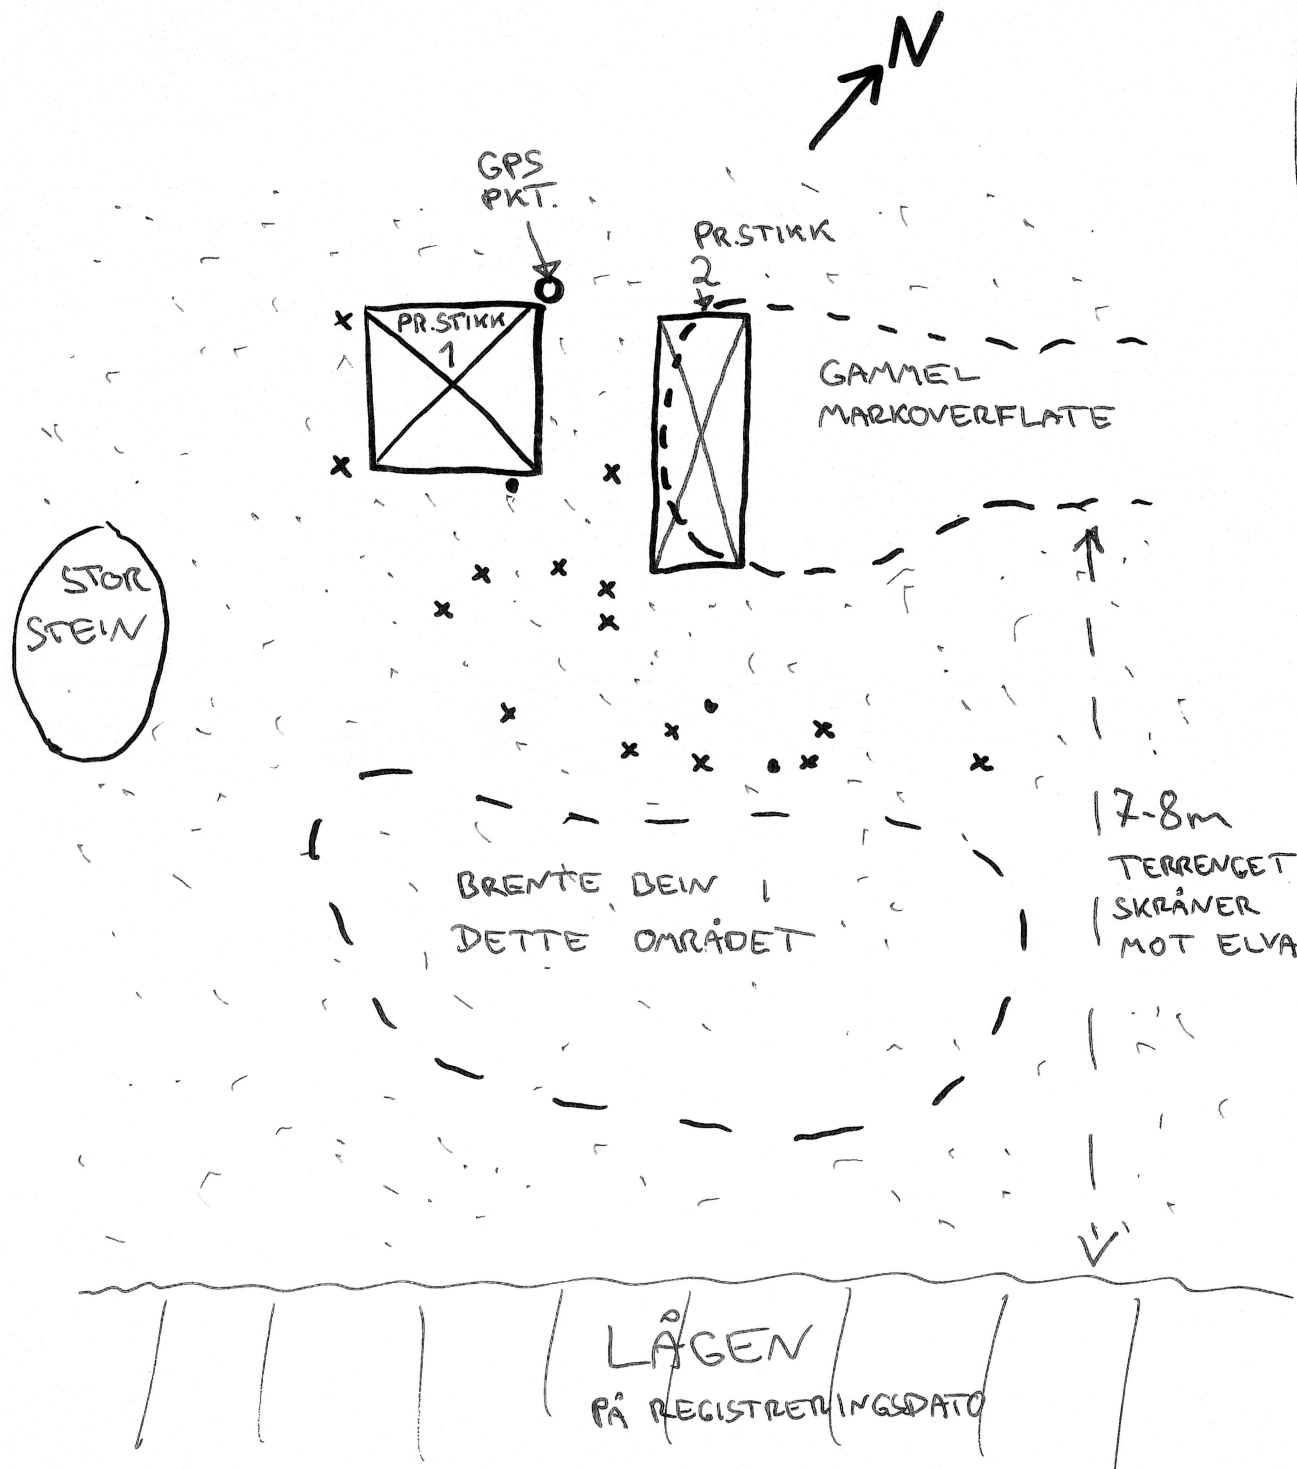 N
GPS
PKT.
PR.STIKK
2
PR.STIKK
1
GAMMEL
MARKOVERFLATE
STOR
STEIN
7-8m
TERRENGET
SKRÅNER
MOT ELVA
BRENTE BEIN I
DETTE OMRÅDET
LÅGEN
PÅ REGISTRERINGSDATO